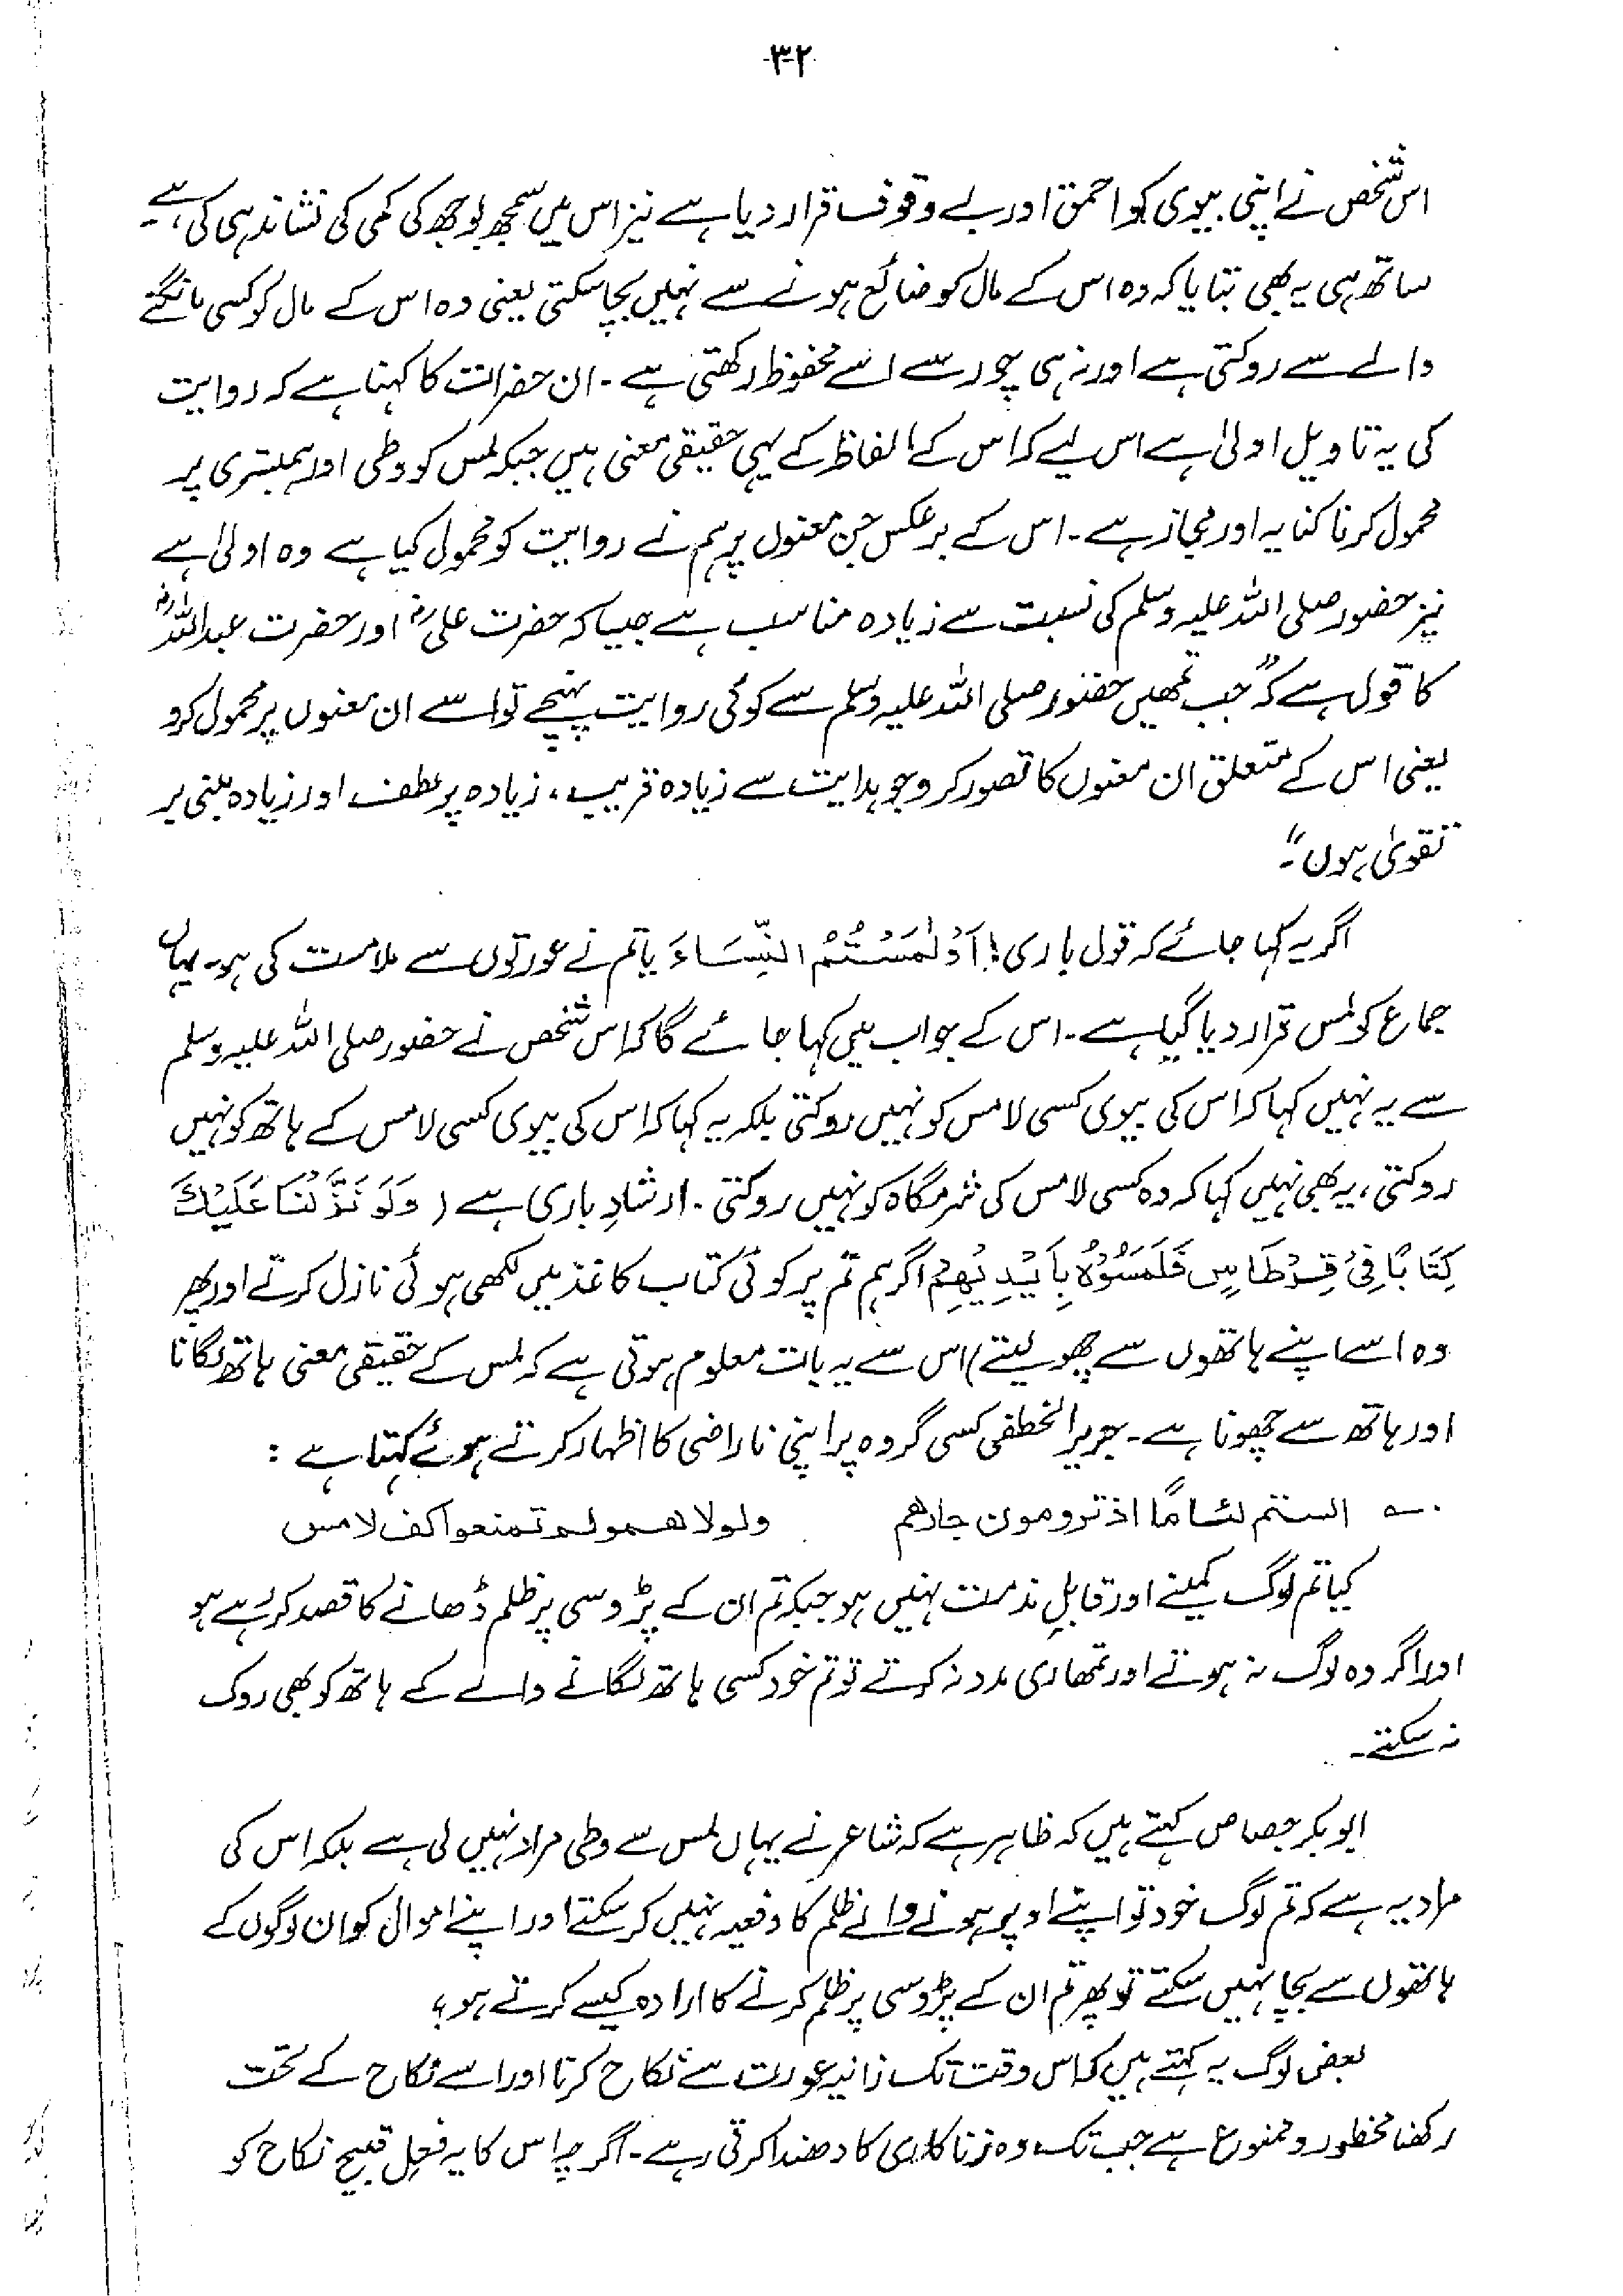 ۳۲
اس شخص نے اپنی بیوی کو احمق اور بے وقوف قرار دیا ہے نیز اس میں سمجھ بوجھ کی کمی کی نشاندہی کی ہے۔
ساتھ ہی یہ بھی بتایا کہ وہ اس کے مال کو ضائع ہونے سے نہیں بچا سکتی یعنی وہ اس کے مال کو کسی مانگنے
والے سے روکتی ہے اور نہ ہی چور سے اسے محفوظ رکھتی ہے۔ ان حضرات کا کہنا ہے کہ روایت
کی یہ تاویل اولیٰ ہے اس لیے کہ اس کے الفاظ کے یہی حقیقی معنی ہیں جبکہ لمس کو وطی اور ہمبستری پر
محمول کرنا کنایہ اور مجاز ہے۔ اس کے برعکس جن معنوں پر ہم نے روایت کو محمول کیا ہے وہ اولیٰ ہے
نیز حضور صلی اللہ علیہ وسلم کی نسبت سے زیادہ مناسب ہے جیسا کہ حضرت علیؓ اور حضرت عبداللہؓ
کا قول ہے کہ "جب تمھیں حضور صلی اللہ علیہ وسلم سے کوئی روایت پہنچے تو اسے ان معنوں پر محمول کرو
یعنی اس کے متعلق ان معنوں کا تصور کرو جو ہدایت سے زیادہ قریب، زیادہ پر لطف اور زیادہ مبنی بر
تقویٰ ہوں"۔
اگر یہ کہا جائے کہ قول باری: اَوْ لٰمَسْتُمُ النِّسَاءَ یا تم نے عورتوں سے ملامست کی ہو۔ یہاں
جماع کو لمس قرار دیا گیا ہے۔ اس کے جواب میں کہا جائے گا کہ اس شخص نے حضور صلی اللہ علیہ وسلم
سے یہ نہیں کہا کہ اس کی بیوی کسی لامس کو نہیں روکتی بلکہ یہ کہا کہ اس کی بیوی کسی لامس کے ہاتھ کو نہیں
روکتی، یہ بھی نہیں کہا کہ وہ کسی لامس کی شرمگاہ کو نہیں روکتی۔ ارشادِ باری ہے (وَلَوْ نَزَّلْنَا عَلَيْكَ
كِتَابًا فِيْ قِرْطَاسٍ فَلَمَسُوْهُ بِاَيْدِيْهِمْ اگر ہم تم پر کوئی کتاب کاغذ میں لکھی ہوئی نازل کرتے اور پھر
وہ اسے اپنے ہاتھوں سے چھو لیتے) اس سے یہ بات معلوم ہوتی ہے کہ لمس کے حقیقی معنی ہاتھ لگانا
اور ہاتھ سے چھونا ہے۔ جریر الخطفی کسی گروہ پر اپنی ناراضی کا اظہار کرتے ہوئے کہتا ہے :
؎ الستم لئامًا اذ ترومون جارهم ولولا همو لم تمنعوا كف لامس
کیا تم لوگ کمینے اور قابلِ مذمت نہیں ہو جبکہ تم ان کے پڑوسی پر ظلم ڈھانے کا قصد کر رہے ہو
اور اگر وہ لوگ نہ ہوتے اور تمھاری مدد نہ کرتے تو تم خود کسی ہاتھ لگانے والے کے ہاتھ کو بھی روک
نہ سکتے۔
ابوبکر جصاص کہتے ہیں کہ ظاہر ہے کہ شاعر نے یہاں لمس سے وطی مراد نہیں لی ہے بلکہ اس کی
مراد یہ ہے کہ تم لوگ خود تو اپنے اوپر ہونے والے ظلم کا دفعیہ نہیں کر سکتے اور اپنے اموال کو ان لوگوں کے
ہاتھوں سے بچا نہیں سکتے تو پھر تم ان کے پڑوسی پر ظلم کرنے کا ارادہ کیسے کرتے ہو؟
بعض لوگ یہ کہتے ہیں کہ اس وقت تک زانیہ عورت سے نکاح کرنا اور اسے نکاح کے تحت
رکھنا محظور و ممنوع ہے جب تک وہ زناکاری کا دھندا کرتی رہے۔ اگرچہ اس کا یہ فعلِ قبیح نکاح کو